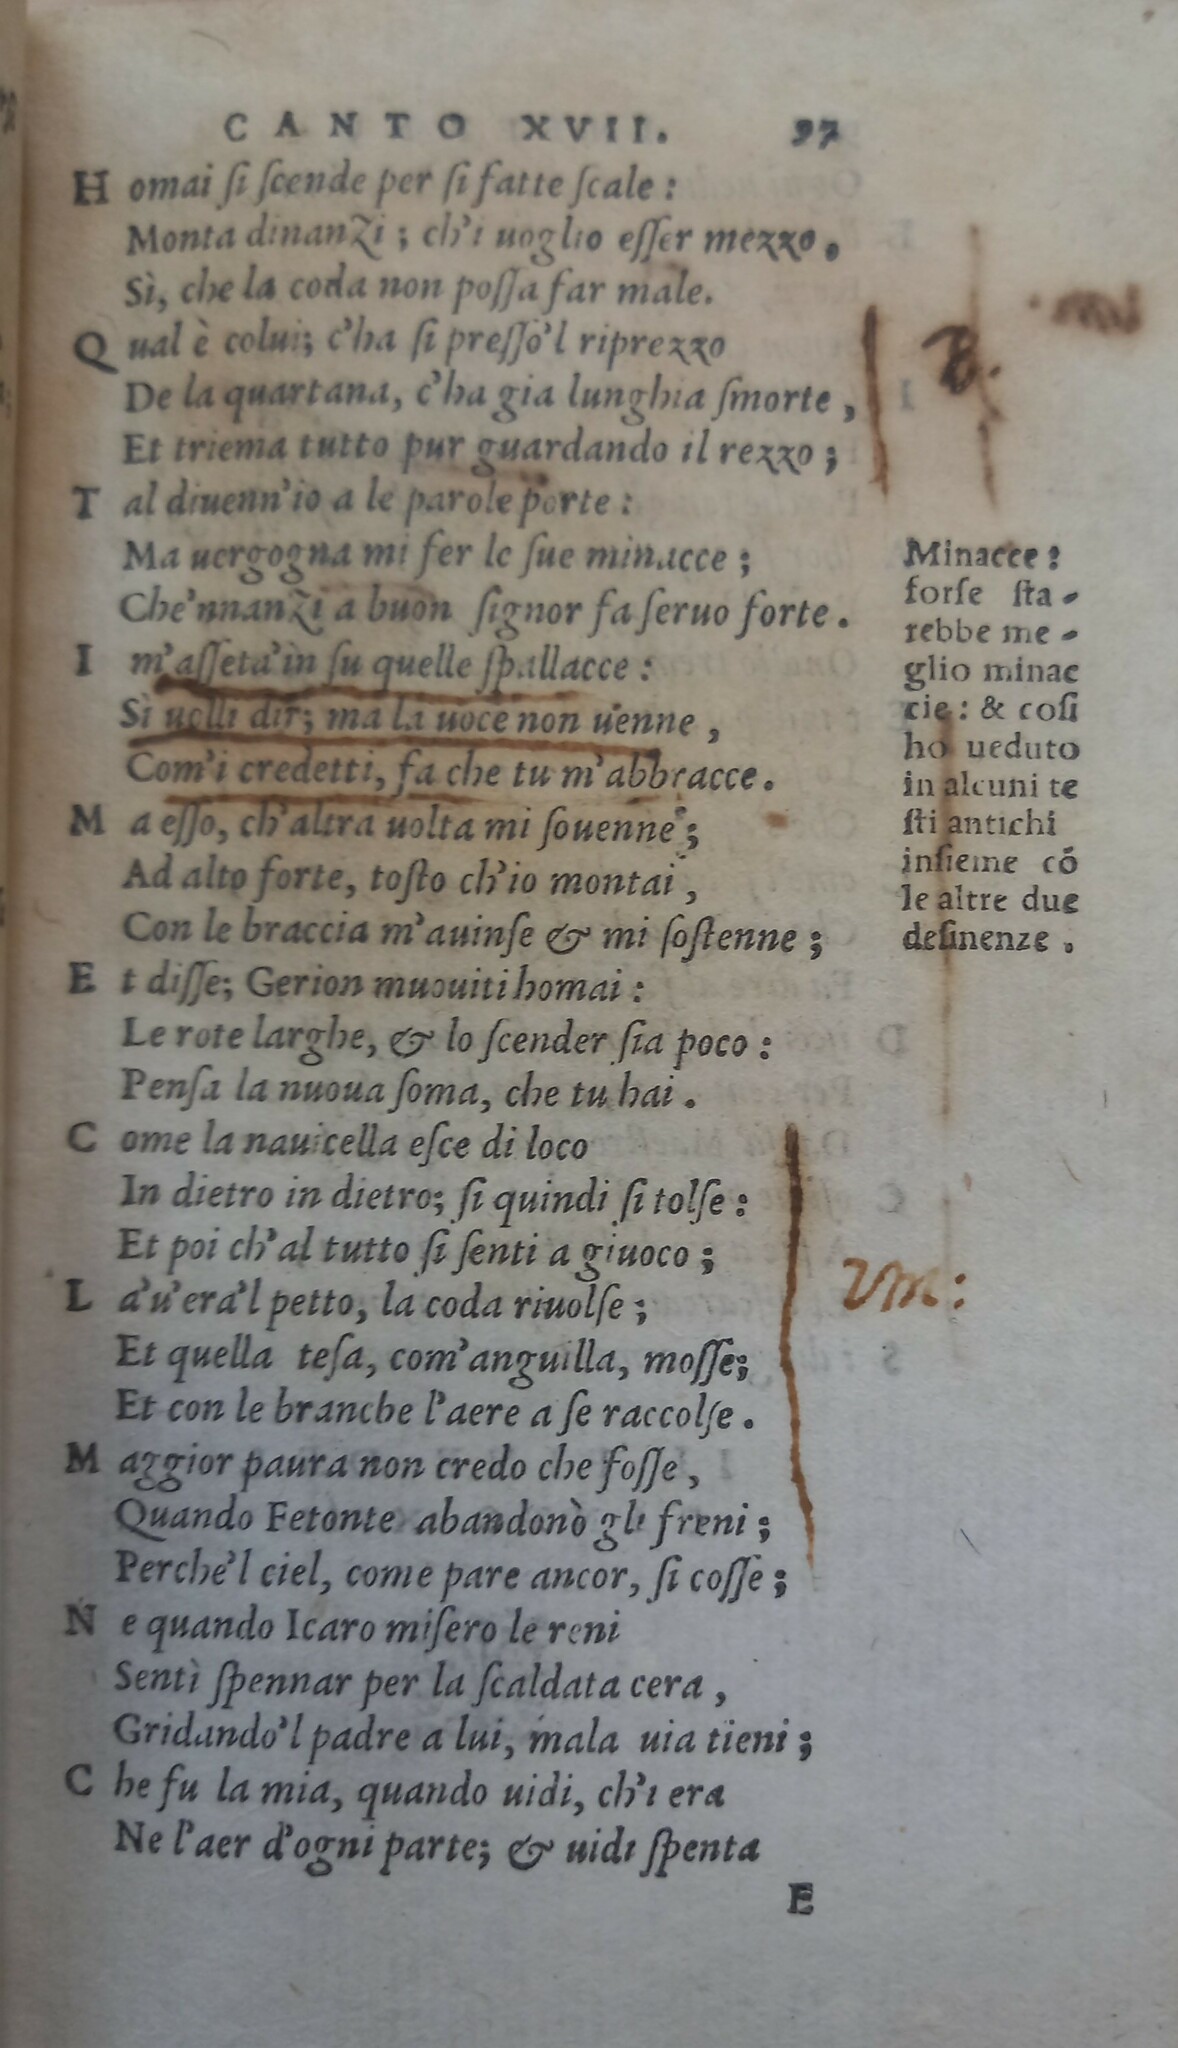 CANTO XVII. 97
Homai ſi ſcende per ſi fatte ſcale :
Monta dinanzi ; ch'i uoglio eſſer mezzo .
Sì, che la coda non poſſa far male.
Qual è colui; c'ha ſi preſſo'l riprezzo
De la quartana, c'ha gia lunghia ſmorte ,
Et triema tutto pur guardando il rezzo ;
Tal diuenn'io a le parole porte :
Ma uergogna mi fer le ſue minacce ;
Che'nnanzi a buon ſignor fa ſeruo forte .
I m'aſſeta'in ſu quelle ſpallacce :
Sì uolli dir; ma la uoce non uenne ,
Com'i credetti, fa che tu m'abbracce .
Ma eſſo, ch'altra uolta mi ſouenne ;
Ad alto forte, toſto ch'io montai ,
Con le braccia m'auinſe & mi ſoſtenne ;
Et diſſe; Gerion muouiti homai :
Le rote larghe, & lo ſcender ſia poco :
Penſa la nuoua ſoma, che tu hai .
Come la nauicella eſce di loco
In dietro in dietro; ſi quindi ſi tolſe :
Et poi ch'al tutto ſi ſenti a giuoco ;
La'u'era'l petto, la coda riuolſe ;
Et quella teſa, com'anguilla, moſſe;
Et con le branche l'aere a ſe raccolſe .
Maggior paura non credo che foſſe ,
Quando Fetonte abandonò gli freni ;
Perche'l ciel, come pare ancor, ſi coſſe ;
Ne quando Icaro miſero le reni
Sentì ſpennar per la ſcaldata cera ,
Gridando'l padre a lui, mala uia tieni ;
Che fu la mia, quando uidi, ch'i era
Ne l'aer d'ogni parte; & uidi ſpenta
E
Minacce :
forſe ſta-
rebbe me-
glio minac
cie : & coſi
ho ueduto
in alcuni te
ſti antichi
inſieme cō
le altre due
deſinenze .